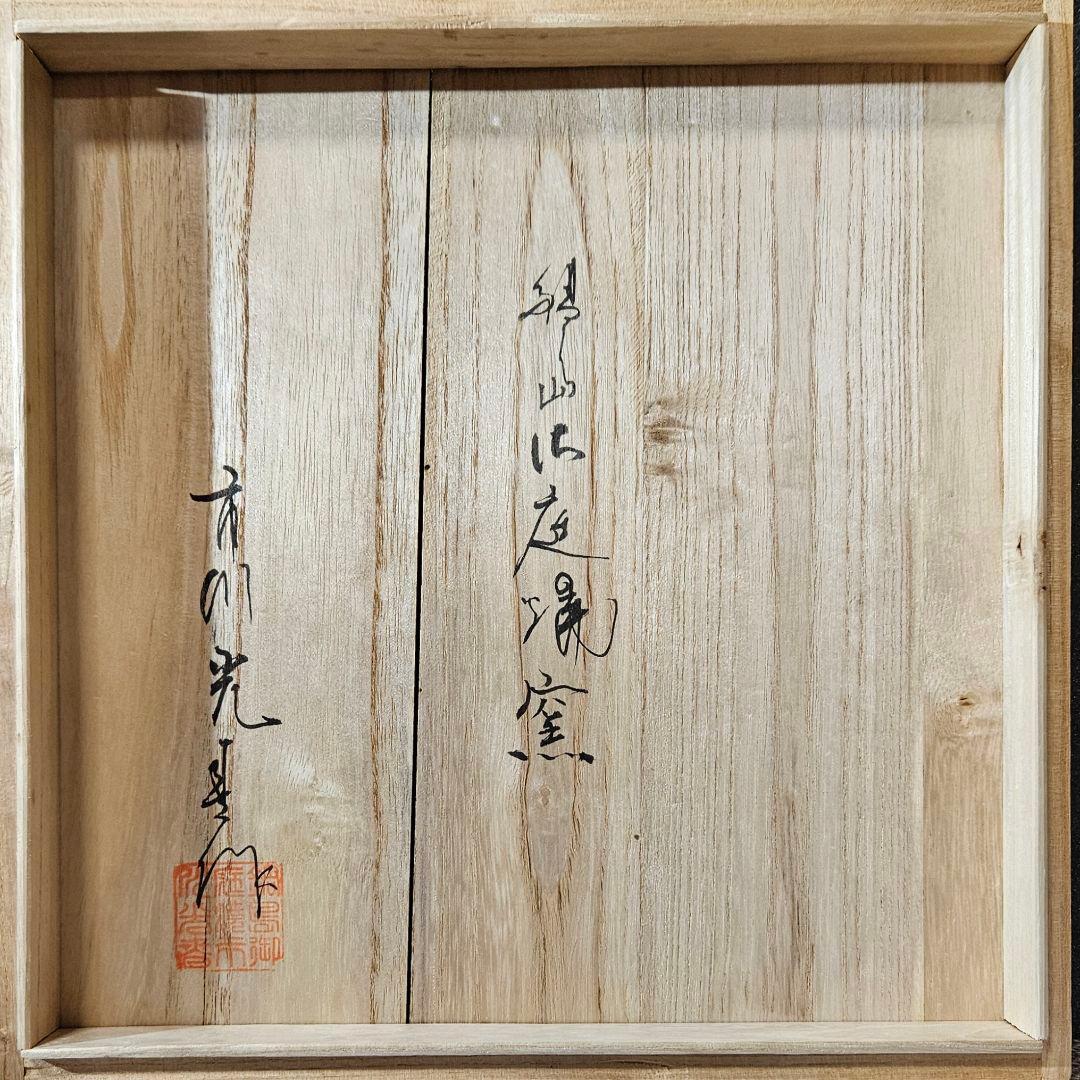 鍋島御庭焼窯
市川光春作
鍋島御
庭焼市
川光春